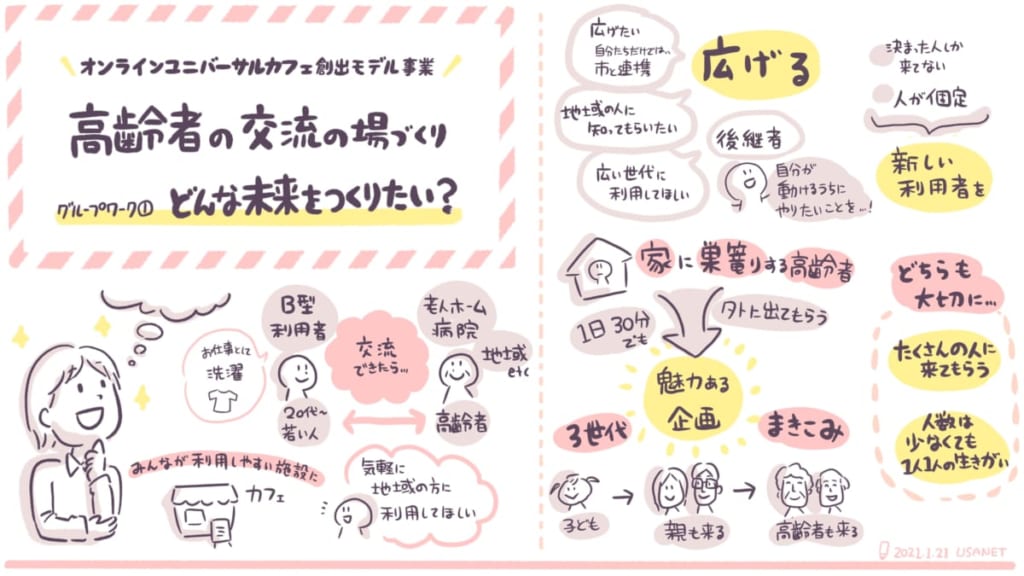 オンラインユニバーサルカフェ創出モデル事業
高齢者の交流の場づくり
グループワーク① どんな未来をつくりたい？
B型
利用者
お仕事として
洗濯
20代～
若い人
交流
できたら…
老人ホーム
病院
地域
etc
高齢者
みんなが利用しやすい施設に
カフェ
気軽に
地域の方に
利用してほしい
広げたい
自分たちだけでは…
市と連携
地域の人に
知ってもらいたい
広い世代に
利用してほしい
広げる
後継者
自分が
動けるうちに
やりたいことを…!
決まった人しか
来てない
人が固定
新しい
利用者を
家に巣篭りする高齢者
1日30分
でも
外に出てもらう
魅力ある
企画
3世代
まきこみ
子ども
親も来る
高齢者も来る
どちらも
大切に…
たくさんの人に
来てもらう
人数は
少なくても
1人1人の生きがい
2021.1.21 USANET